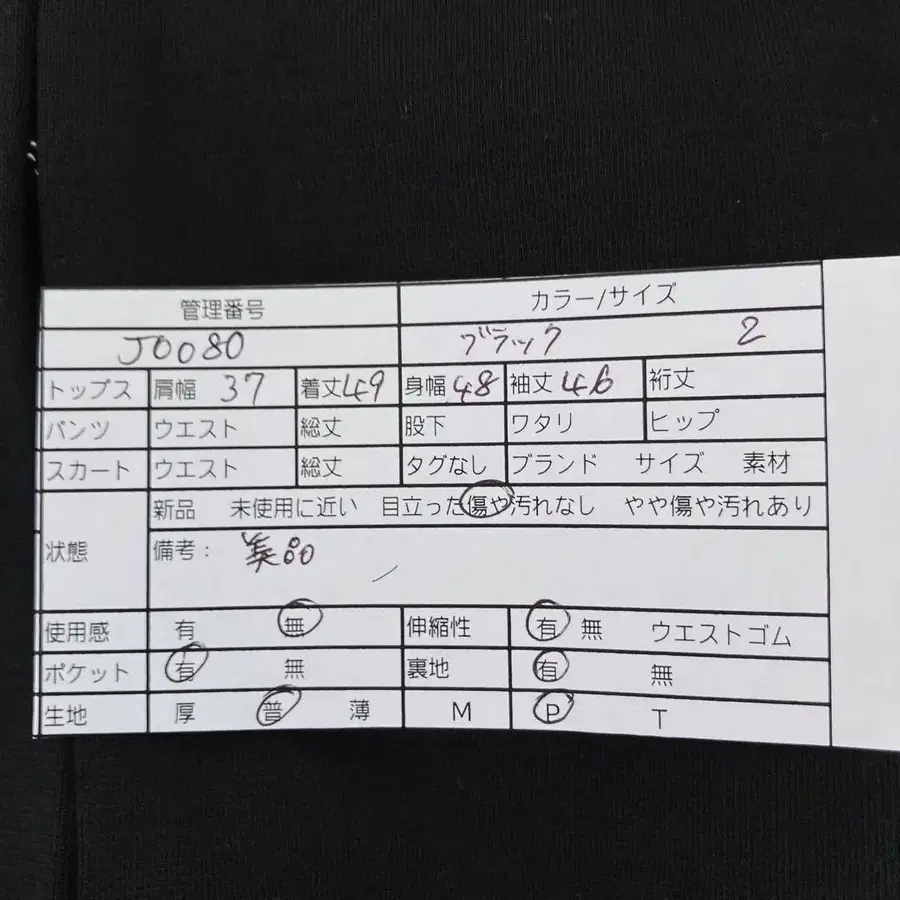 管理番号 カラー/サイズ
J0080 ブラック 2
トップス 肩幅 37 着丈 49 身幅 48 袖丈 46 裄丈
パンツ ウエスト 総丈 股下 ワタリ ヒップ
スカート ウエスト 総丈 タグなし ブランド サイズ 素材
状態 新品 未使用に近い 目立った傷や汚れなし やや傷や汚れあり
備考: 美品
使用感 有 無 伸縮性 有 無 ウエストゴム
ポケット 有 無 裏地 有 無
生地 厚 普 薄 M P T